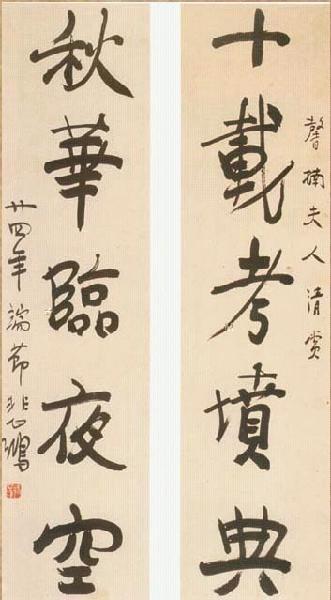 馨楠夫人清賞
十載考墳典
秋華臨夜空
廿四年端節悲鴻